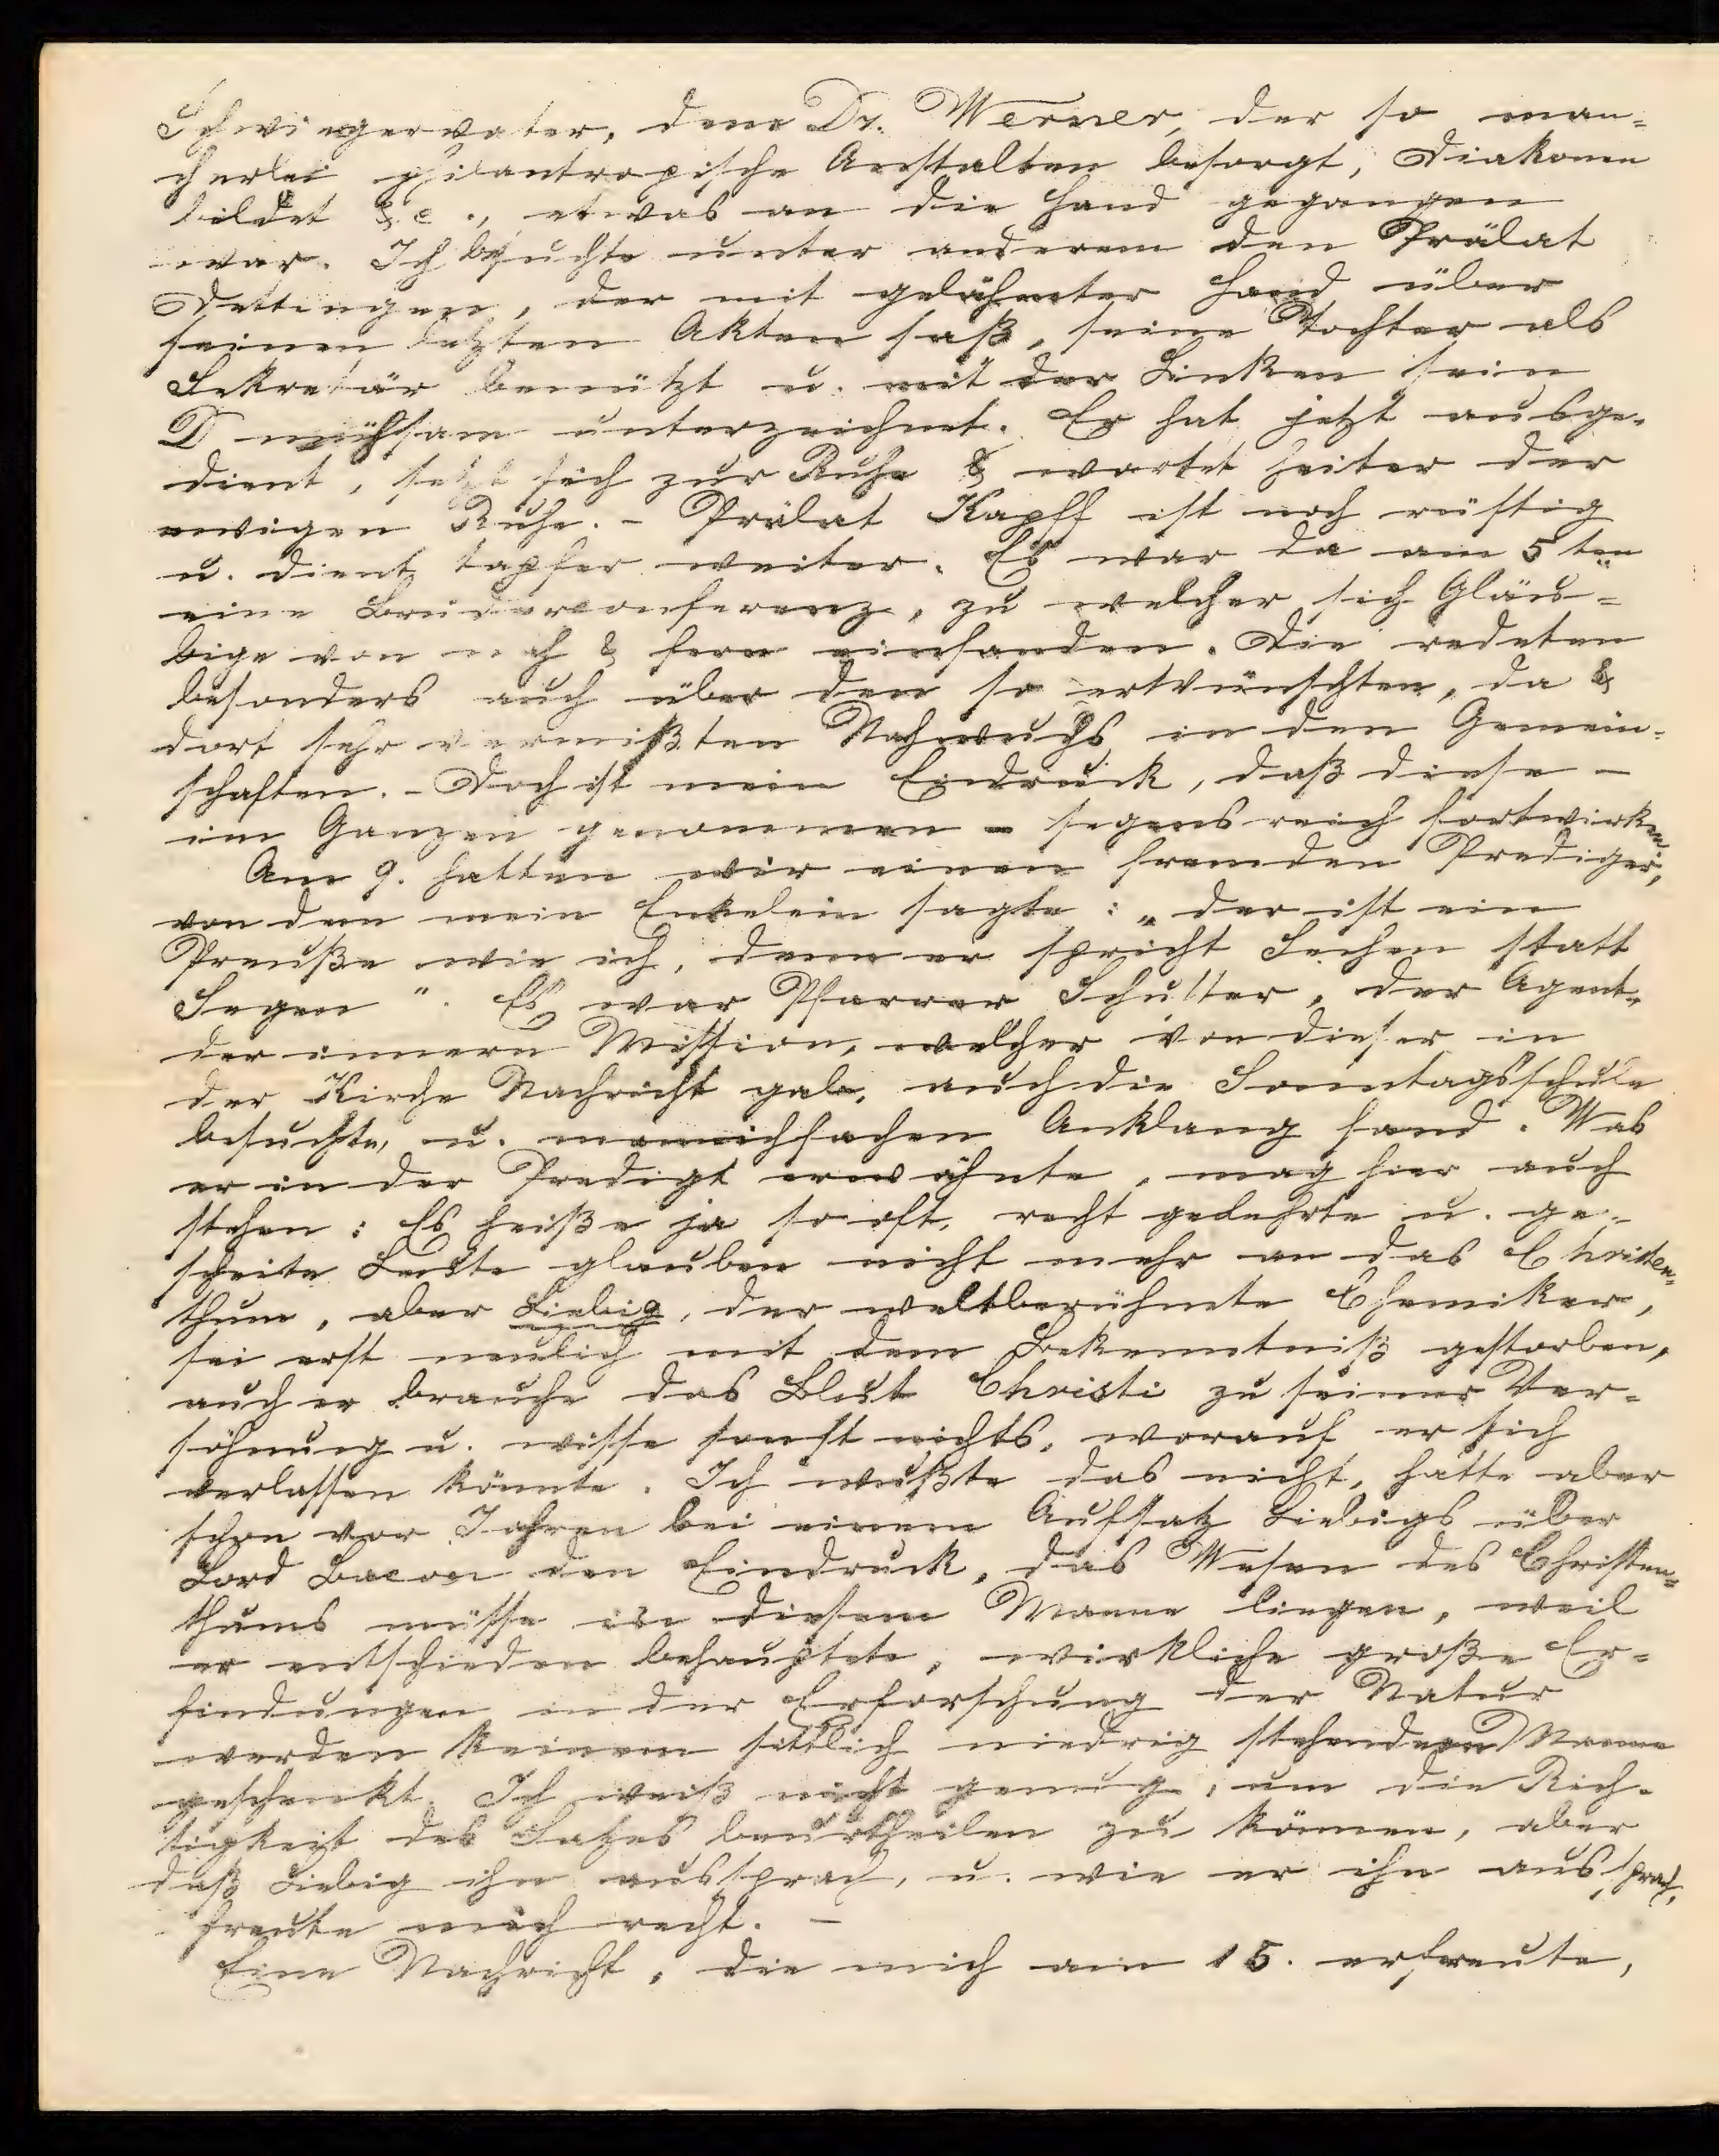 Schwiegervater, dem Dr. Werner, der so man-
cherlei philantropische Anstalten besorgt, Diakonen
bildet &c., etwas an die Hand gegangen
war. Ich besuchte unter anderem den Prälat
Dettingen, der mit gelähmter Hand über
seinen letzten Akten saß, seine Tochter als
Sekretär benützt u. mit der Linken sein
D mühsam unterzeichnet. Er hat jetzt ausge-
dient, setzt sich zur Ruhe & wartet heiter der
ewigen Ruhe. - Prälat Kapff ist noch rüstig
u. dient tapfer weiter. Es war da am 5ten
eine Bruderconferenz, zu welcher sich Gläu-
bige von nah & fern einfanden. Die redeten
besonders auch über den so erwünschten, da &
dort sehr vermißten Nachwuchs in den Gemein-
schaften. - Doch ist mein Eindruck, daß diese -
im Ganzen genommen - segensreich fortwirken.
Am 9. hatten wir einen fremden Prediger,
von dem mein Enkelein sagte: „der ist ein
Preuße wie ich, denn er spricht Sechen statt
Segen". Es war Pfarrer Schuster, der Agent
der innern Mission, welcher von dieser in
der Kirche Nachricht gab, auch die Sonntagsschule
besuchte, u. mannichfachen Anklang fand. Was
er in der Predigt erwähnte, mag hier auch
stehen: Es heiße ja so oft, recht gelehrte u. ge-
scheite Leute glauben nicht mehr an das Christen-
thum, aber Liebig, der weltberühmte Chemiker,
sei erst neulich mit dem Bekenntniß gestorben,
auch er brauche das Blut Christi zu seiner Ver-
söhnung u. wisse sonst nichts, worauf er sich
verlassen könnte. Ich wußte das nicht, hatte aber
schon vor Jahren bei einem Aufsatz Liebigs über
Lord Bacon den Eindruck, das Wesen des Christen-
thums müsse in diesem Manne liegen, weil
er entschieden behauptete, wirkliche große Er-
findungen in der Erforschung der Natur
werden keinem sittlich niedrig stehenden Manne
geschenkt. Ich weiß nicht genug, um die Rich-
tigkeit des Satzes beurtheilen zu können, aber
daß Liebig ihn aussprach, u. wie er ihn aussprach,
freute mich recht. -
Eine Nachricht, die mich am 15. erfreute,